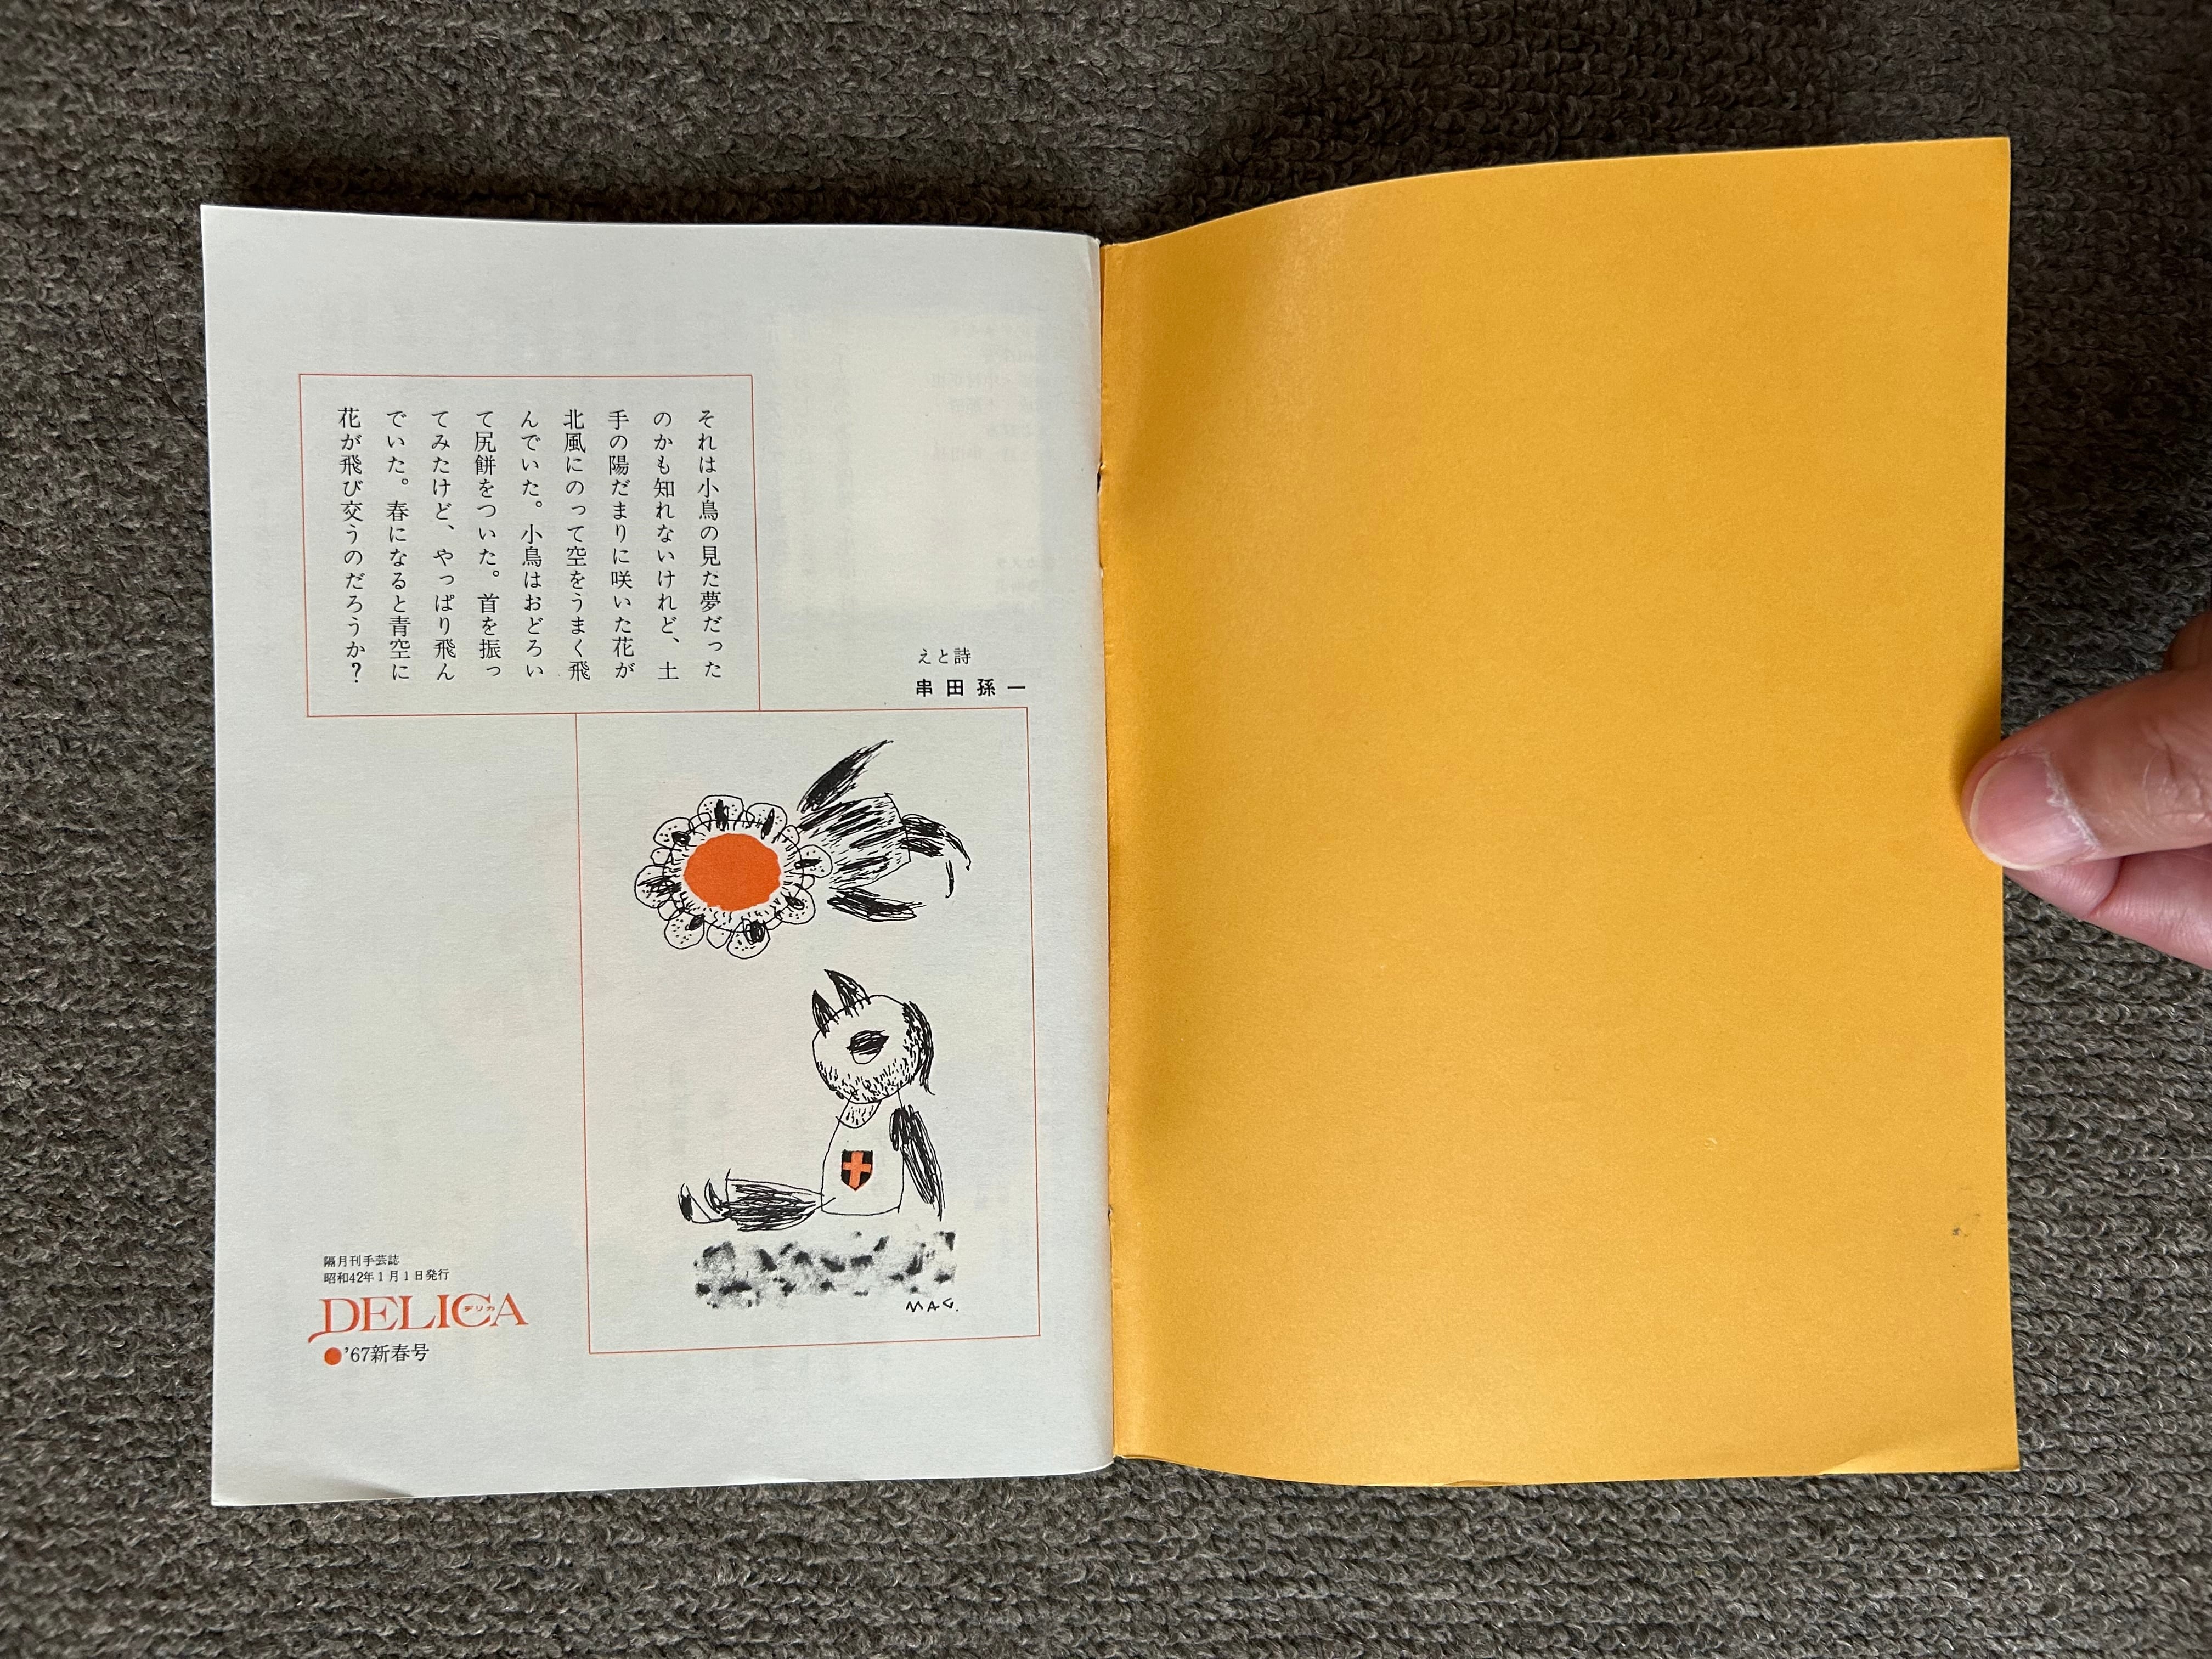 えと詩
串田孫一
それは小鳥の見た夢だった
のかも知れないけれど、土
手の陽だまりに咲いた花が
北風にのって空をうまく飛
んでいた。小鳥はおどろい
て尻餅をついた。首を振っ
てみたけど、やっぱり飛ん
でいた。春になると青空に
花が飛び交うのだろうか?
MAG.
隔月刊手芸誌
昭和42年1月1日発行
DELICA
デリカ
●'67新春号